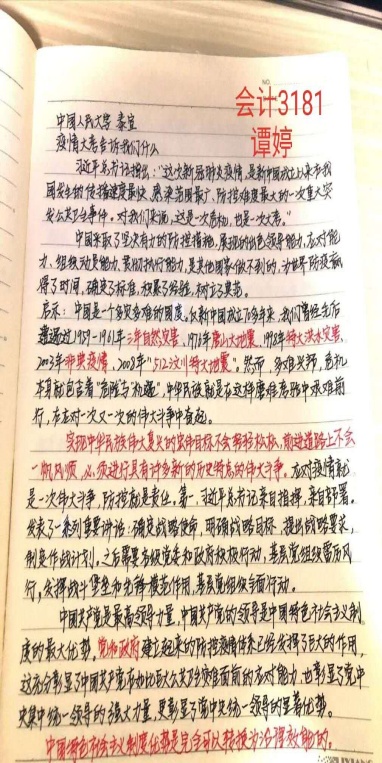 NO.
会计3181
谭婷
中国人民大学 秦宣
疫情大考告诉我们什么
习近平总书记指出：“这次新冠肺炎疫情，是新中国成立以来在我
国发生的传播速度最快、感染范围最广、防控难度最大的一次重大突
发公共卫生事件。对我们来说，这是一次危机，也是一次大考。”
中国采取了坚决有力的防控措施，展现的出色领导能力、应对能
力、组织动员能力、贯彻执行能力，是其他国家做不到的，为世界防疫赢
得了时间，确定了标准，积累了经验，树立了典范。
启示：中国是一个多灾多难的国度。仅新中国成立70多年来，我们曾经先后
遭遇过1959-1961年三年自然灾害、1976年唐山大地震、1998年特大洪水灾害、
2003年非典疫情、2008年“512汶川特大地震”。然而，多难兴邦，危机
本身就包含着“危险与机遇”，中华民族就是在这样磨难危险中艰难前
行，在应对一次又一次的伟大斗争中奋起。
实现中华民族伟大复兴的宏伟目标不会轻轻松松，前进道路上不会
一帆风顺，必须进行具有许多新的历史特点的伟大斗争。应对疫情就
是一次伟大斗争，防控就是责任。第一，习近平总书记亲自指挥，亲自部署。
发表了一系列重要讲话：确定战略使命，明确战略目标，提出战略要求，
制定作战计划。之后需要各级党委和政府积极行动，基层党组织雷厉风
行，发挥战斗堡垒和先锋模范作用，基层党组织全面行动。
中国共产党是最高领导力量，中国共产党的领导是中国特色社会主义制
度的最大优势。党和政府建立起来的防控疫情体系已经发挥了巨大的作用，
这充分彰显了中国共产党在如此巨大公共卫生灾难面前的应对能力，也彰显了党中
央集中统一领导的强大力量，更彰显了党中央统一领导的显著优势。
中国特色社会主义制度优势是完全可以转换为治理效能的。